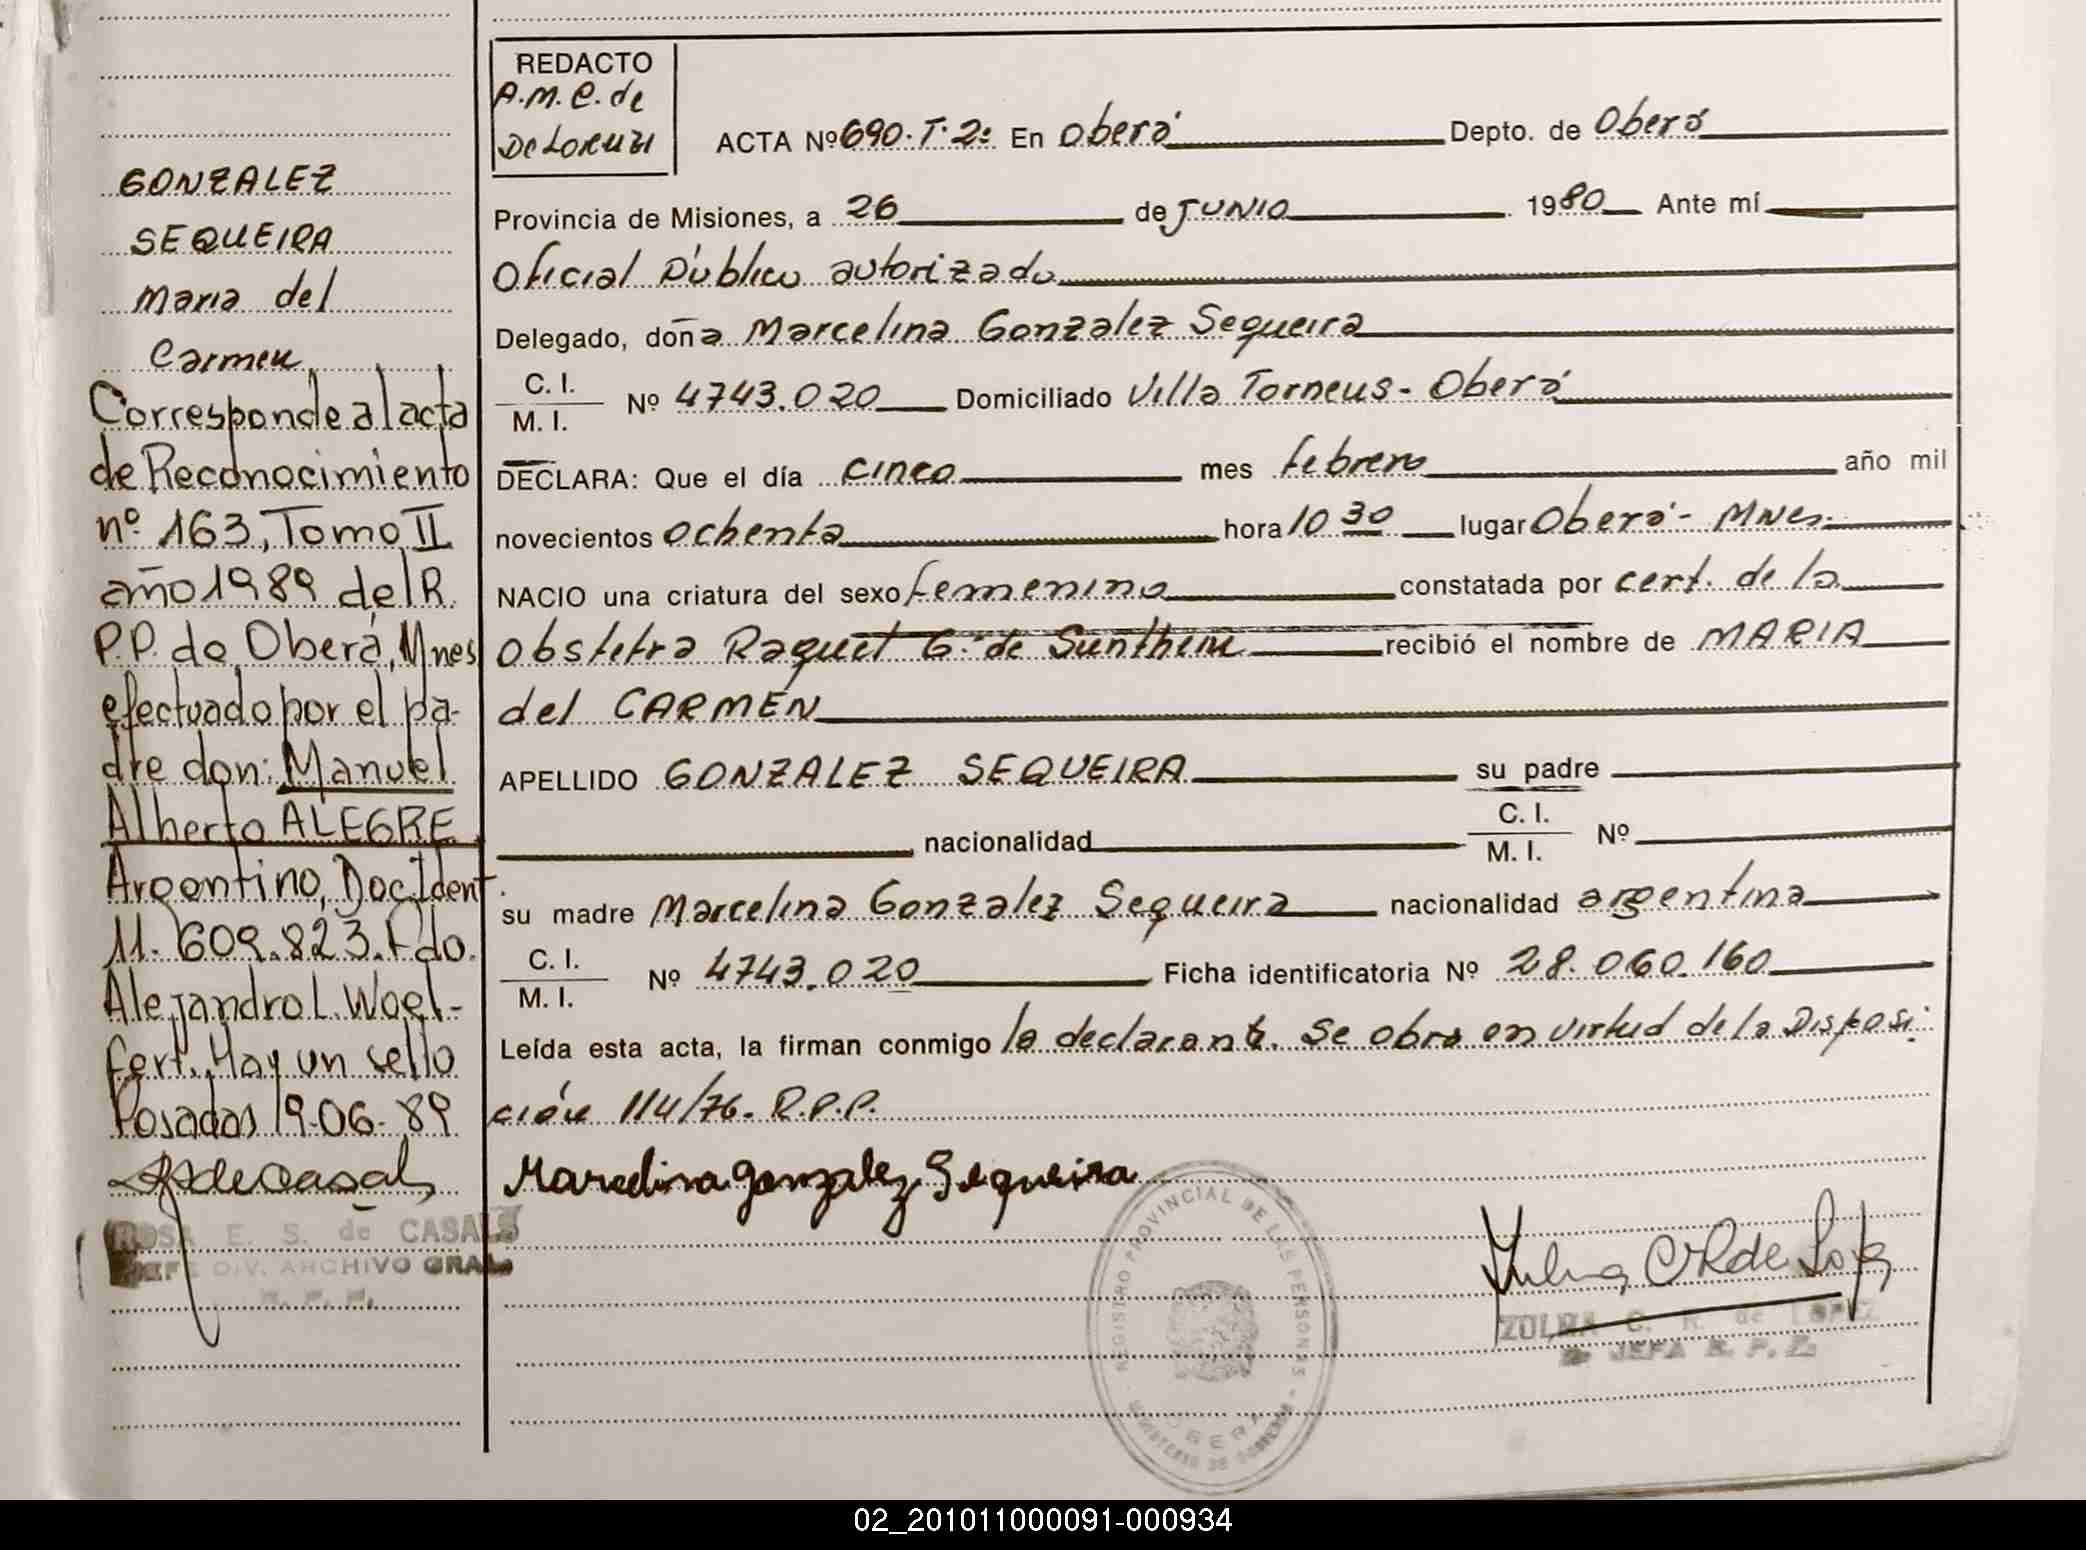 GONZALEZ
SEQUEIRA
Maria del
Carmen
Corresponde al acta
de Reconocimiento
nº 163, Tomo II
año 1989 del R.
P.P. de Oberá, Mnes
efectuado por el pa-
dre don: Manuel
Alberto ALEGRE
Argentino, Doc. Ident
11.609.823. Fdo.
Alejandro L. Woel-
fert. Hay un sello
Posadas 19-06-89
ROSA E. S. de CASALS
JEFE DIV. ARCHIVO GRAL.
R. P. P.
REDACTO
A.M.C. de
De Lorenzi
ACTA Nº 690. T. 2: En Oberá Depto. de Oberá
Provincia de Misiones, a 26 de JUNIO 1980 Ante mí
Oficial Público autorizado
Delegado, doña Marcelina Gonzalez Sequeira
C. I.
M. I. Nº 4743.020 Domiciliado Villa Torneus - Oberá
DECLARA: Que el día cinco mes febrero año mil
novecientos ochenta hora 10 30 lugar Oberá - Mnes.
NACIO una criatura del sexo femenino constatada por cert. de la
obstetra Raquel G. de Sunthein recibió el nombre de MARIA
del CARMEN
APELLIDO GONZALEZ SEQUEIRA su padre
nacionalidad C. I.
M. I. Nº
su madre Marcelina Gonzalez Sequeira nacionalidad argentina
C. I.
M. I. Nº 4743.020 Ficha identificatoria Nº 28.060.160
Leída esta acta, la firman conmigo la declarante. Se obra en virtud de la Disposi
ción 114/76. R.P.P.
Marcelina Gonzalez Sequeira
REGISTRO PROVINCIAL DE LAS PERSONAS
MINISTERIO DE GOBIERNO
OBERA
ZULMA C. R. de LOPEZ
JEFA R. P. P.
02_201011000091-000934